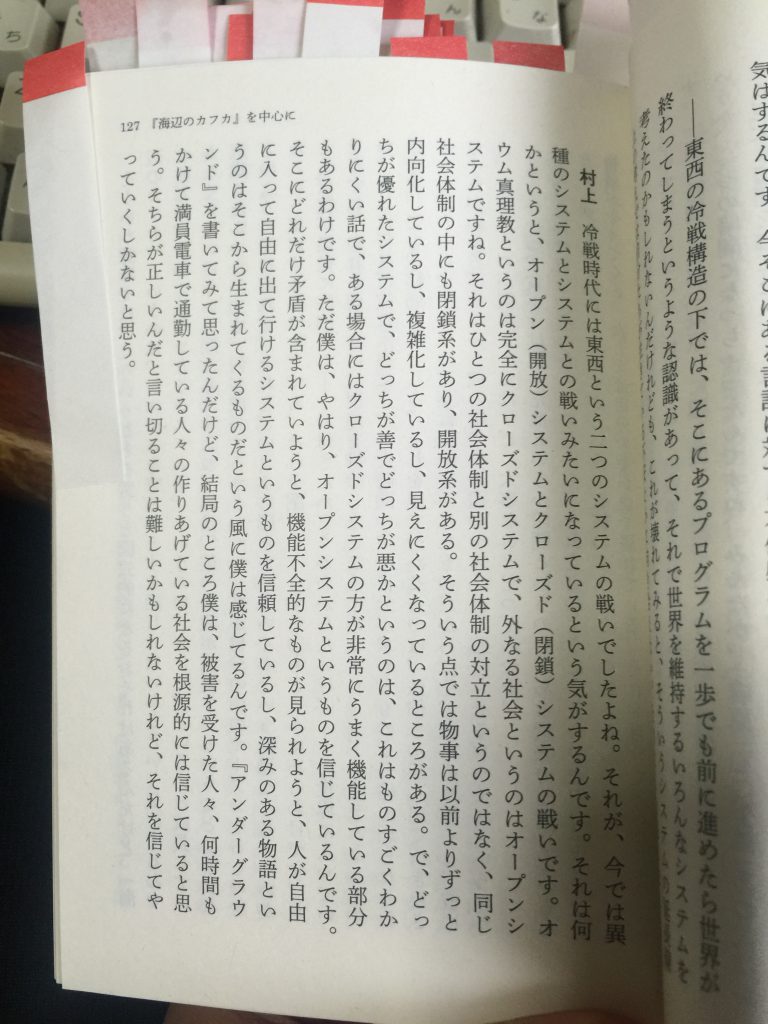 気はするんです。今そこにある言語に対
――東西の冷戦構造の下では、そこにあるプログラムを一歩でも前に進めたら世界が
終わってしまうというような認識があって、それで世界を維持するいろんなシステムを
考えたのかもしれないんだけれども、これが壊れてみると、そういうシステムの
127 『海辺のカフカ』を中心に
村上 冷戦時代には東西という二つのシステムの戦いでしたよね。それが、今では異
種のシステムとシステムとの戦いみたいになっているという気がするんです。それは何
かというと、オープン（開放）システムとクローズド（閉鎖）システムの戦いです。オ
ウム真理教というのは完全にクローズドシステムで、外なる社会というのはオープンシ
ステムですね。それはひとつの社会体制と別の社会体制の対立というのではなく、同じ
社会体制の中にも閉鎖系があり、開放系がある。そういう点では物事は以前よりずっと
内向化しているし、複雑化しているし、見えにくくなっているところがある。で、どっ
ちが優れたシステムで、どっちが善でどっちが悪かというのは、これはものすごくわか
りにくい話で、ある場合にはクローズドシステムの方が非常にうまく機能している部分
もあるわけです。ただ僕は、やはり、オープンシステムというものを信じているんです。
そこにどれだけ矛盾が含まれていようと、機能不全的なものが見られようと、人が自由
に入って自由に出て行けるシステムというものを信頼しているし、深みのある物語とい
うのはそこから生まれてくるものだという風に僕は感じてるんです。『アンダーグラウ
ンド』を書いてみて思ったんだけど、結局のところ僕は、被害を受けた人々、何時間も
かけて満員電車で通勤している人々の作りあげている社会を根源的には信じていると思
う。そちらが正しいんだと言い切ることは難しいかもしれないけれど、それを信じてや
っていくしかないと思う。